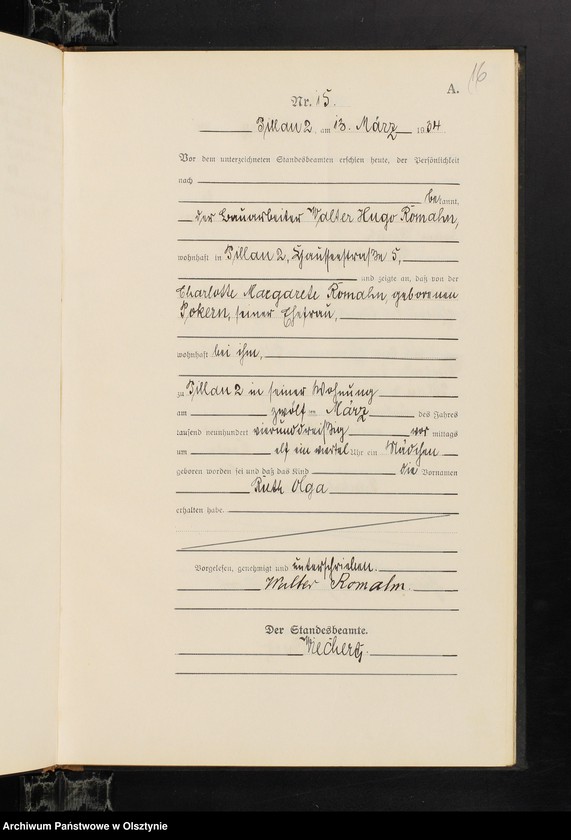 16
A.
Nr. 15.
Pillau 2 am 13. März 1934
Vor dem unterzeichneten Standesbeamten erschien heute, der Persönlichkeit
nach
bekannt,
der Bauarbeiter Walter Hugo Romahn,
wohnhaft in Pillau 2, Chausseestraße 5,
und zeigte an, daß von der
Charlotte Margarete Romahn, geborenen
Pokern, seiner Ehefrau,
wohnhaft bei ihm,
zu Pillau 2 in seiner Wohnung
am zwölften März des Jahres
tausend neunhundert vierunddreißig vormittags
um elf ein viertel Uhr ein Mädchen
geboren worden sei und daß das Kind die Vornamen
Ruth Olga
erhalten habe.
Vorgelesen, genehmigt und unterschrieben.
Walter Romahn.
Der Standesbeamte.
Archiwum Państwowe w Olsztynie